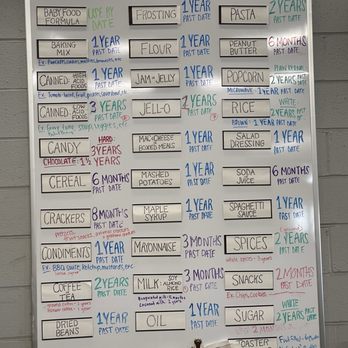 BABY FOOD
FORMULA
USE BY
DATE
BAKING
MIX
1 YEAR
PAST DATE
CANNED HIGH
ACID
FOODS
1 YEAR
PAST DATE
CANNED LOW
ACID
FOODS
3 YEARS
PAST DATE
CANDY
HARD
3 YEARS
CHOCOLATE: 1 ½ YEARS
CEREAL
6 MONTHS
PAST DATE
CRACKERS
8 MONTHS
PAST DATE
CONDIMENTS
1 YEAR
PAST DATE
Ex: BBQ sauce, ketchup, mustards, etc.
COFFEE
TEA
2 YEARS
PAST DATE
DRIED
BEANS
1 YEAR
PAST DATE
FROSTING
1 YEAR
PAST DATE
FLOUR
1 YEAR
PAST DATE
JAM-JELLY
1 YEAR
PAST DATE
JELL-O
2 YEARS
PAST DATE
MAC-CHEESE
BOXED MEALS
1 YEAR
PAST DATE
MASHED
POTATOES
1 YEAR
PAST DATE
MAPLE
SYRUP
1 YEAR
PAST DATE
MAYONNAISE
3 MONTHS
PAST DATE
MILK: SOY
ALMOND
RICE
3 MONTHS
PAST DATE
OIL
1 YEAR
PAST DATE
PASTA
2 YEARS
PAST DATE
PEANUT
BUTTER
6 MONTHS
PAST DATE
POPCORN
2 YEARS
PAST DATE
MICROWAVE: 1 YEAR PAST DATE
RICE
WHITE
2 YEARS
PAST DATE
BROWN: 1 YEAR PAST DATE
SALAD
DRESSING
1 YEAR
PAST DATE
SODA
JUICE
6 MONTHS
PAST DATE
SPAGHETTI
SAUCE
1 YEAR
PAST DATE
SPICES
2 YEARS
PAST DATE
SNACKS
2 MONTHS
PAST DATE
Ex: Chips, Cookies
SUGAR
WHITE
2 YEARS
PAST DATE
TOASTER